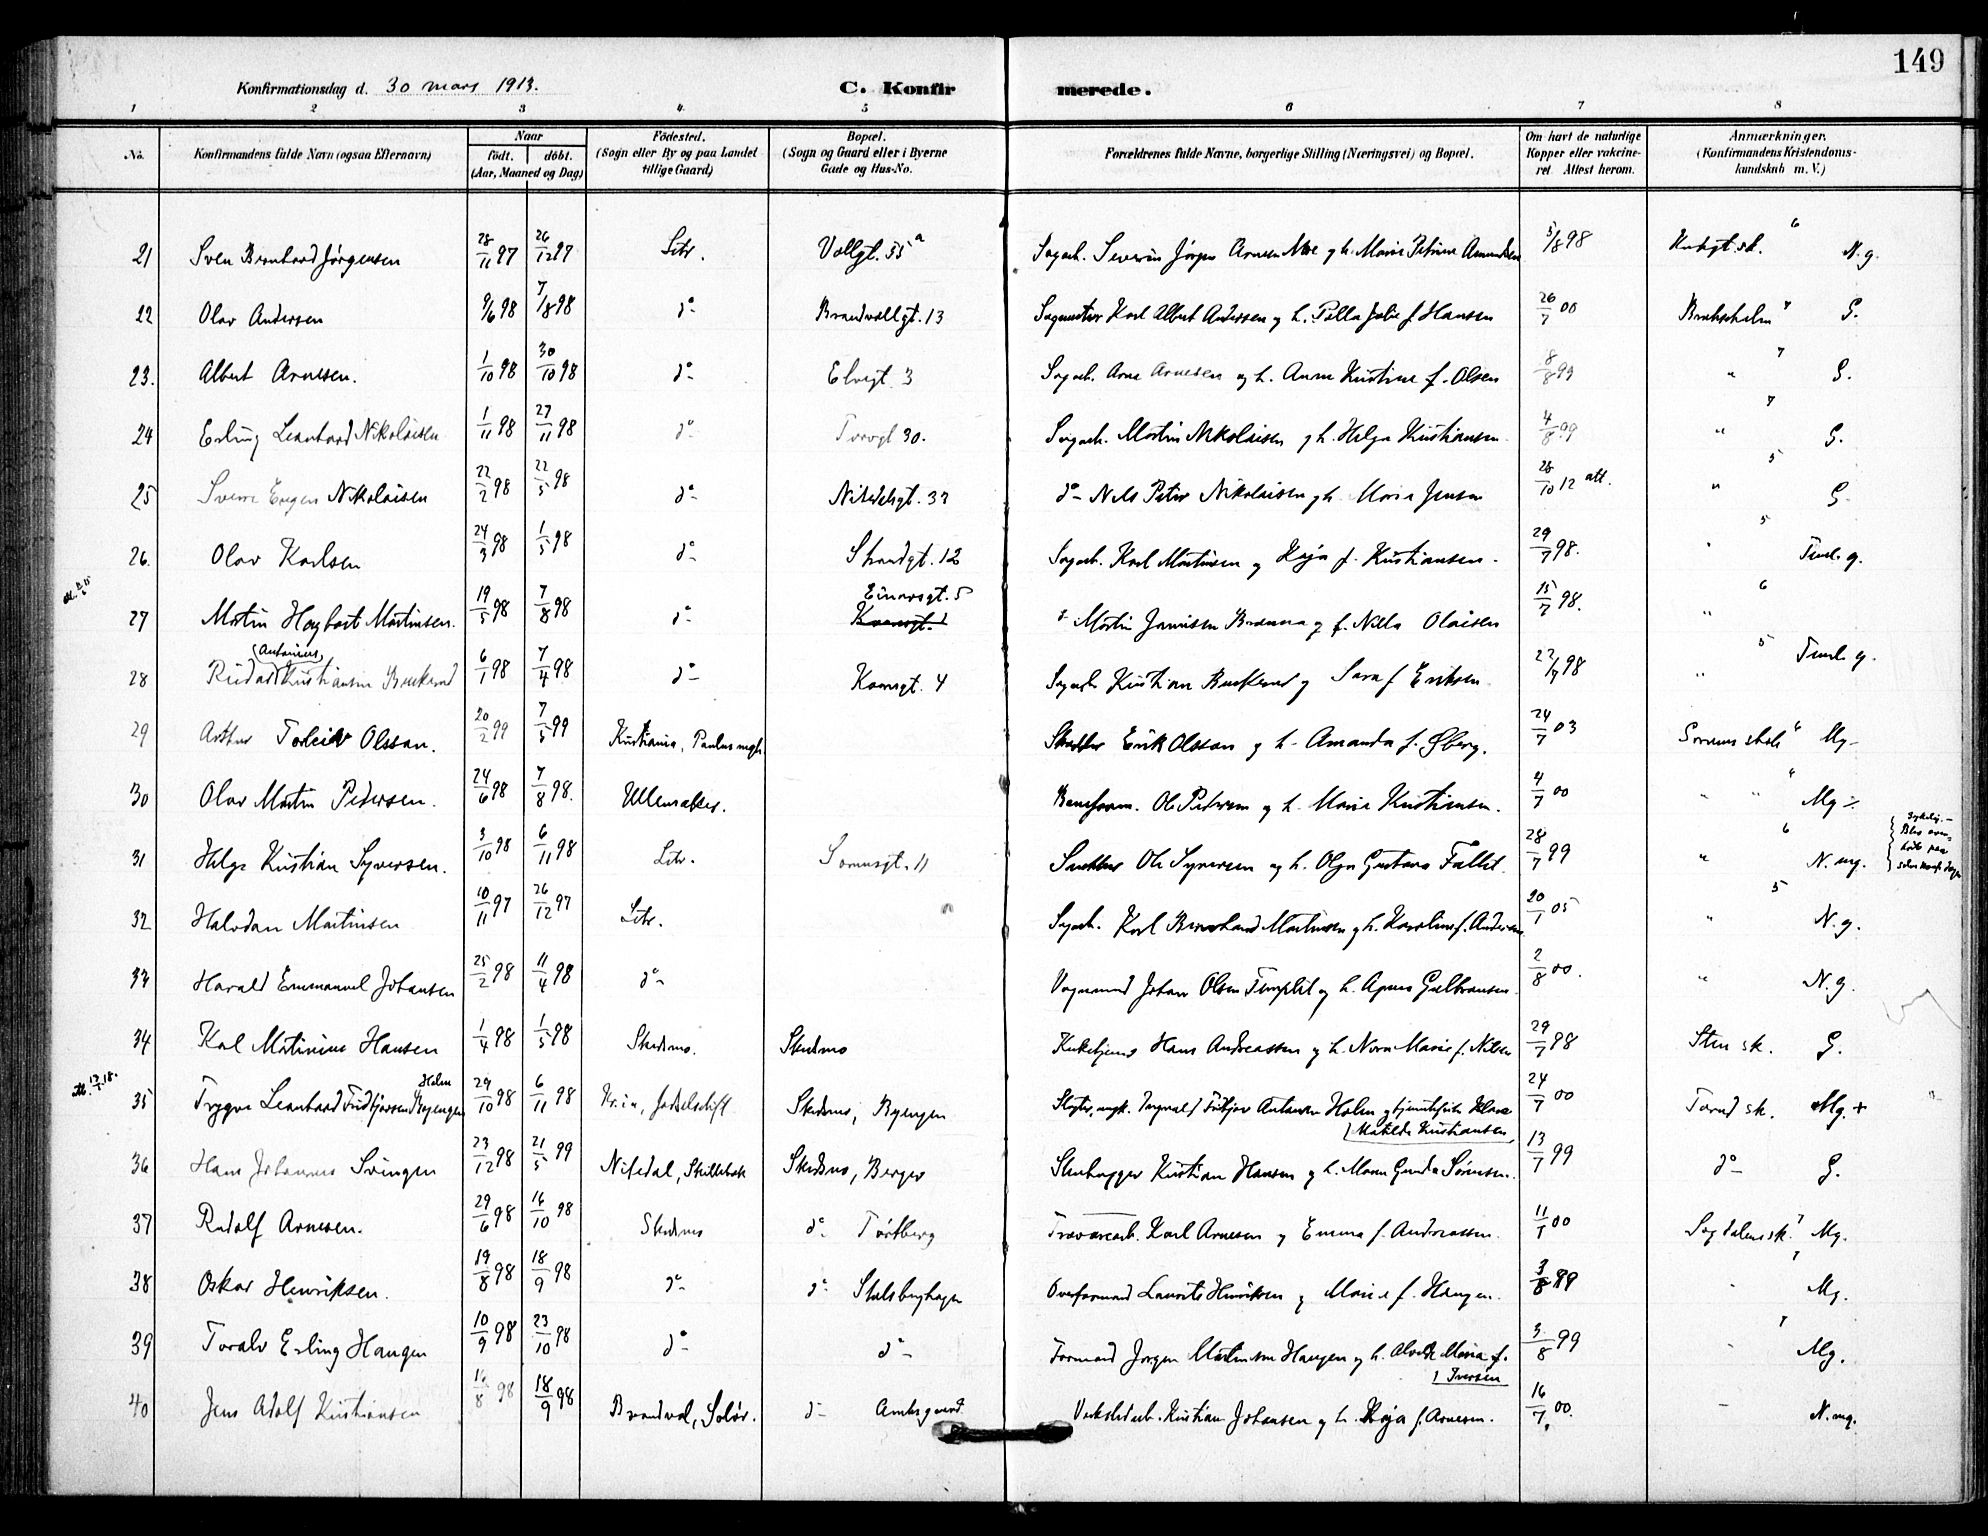 149
Konfirmationsdag d. 30 mars 1913.
C. Konfirmerede.
1 2 3 4. 5 6 7 8
No. Konfirmandens fulde Navn (ogsaa Efternavn) Naar født. døbt. (Aar, Maaned og Dag) Fødested. (Sogn eller By og paa Landet tillige Gaard) Bopæl. (Sogn og Gaard eller i Byerne Gade og Hus-No. Forældrenes fulde Navne, borgerlige Stilling (Næringsvei) og Bopæl. Om havt de naturlige Kopper eller vakcineret. Attest herom. Anmærkninger. (Konfirmandens Kristendomskundskab m. V.)
21 Sven Bernhard Jørgensen 28/11 97 26/12 97 Lstr. Vollgt. 55 a Sagarb. Severin Jørgen Arnesen Moe g h. Marie Petrine Amundsen 3/8 98 6 N.g.
22 Olav Andersen 9/6 98 7/8 98 d° Brandvollgt. 13 Sagmester Karl Albert Andersen og h. Julie f. Hansen 26/7 00 7 G.
23. Albert Arnesen. 1/10 98 30/10 98 d°- Elvegt. 3 Sagarb. Arne Arnesen og h. Anne Kristine f. Olsen 8/8 99 7 " G.
24 Erling Leonhard Nikolaisen 1/11 98 27/11 98 d°- Torvgt 30. Sagarb. Martin Nikolaisen g h. Helga Kristiansen 4/8 99 7 " G.
25 Sverre Eugen Nikolaisen 22/2 98 22/5 98 d°- Nitedelsgt. 33 d°- Nils Peter Nikolaisen g h. Marie Jensen 28/10 12 att. 5 " G
26. Olav Karlsen 24/3 98 1/5 98 d°- Strandgt. 12 Sagarb. Karl Martinsen og Kaja f. Kristiansen. 29/7 98. 5 " Teml. g.
27 Martin Hagbart Martinsen. 19/5 98 7/8 98 d°- Einarsgt. 5 Martin Jamisen Brænna og f. Nilla Olaisen 15/7 98. 6 "
28 Ridar (Antonius) Kristiansen Buskerud 6/1 98 7/4 98 d°- Kornsgt. 4 Sagarb Kristian Buskerud og Sara f Eriksen 22/7 98 5 " Teml. g.
29 Arthur Toleiv Olssan. 20/2 99 7/5 99 Kristiania, Paulus mgh. Erik Olssan g h. Amanda f. Øberg. 24/7 03 6 Mg
30 Olav Martin Pedersen. 24/6 98 7/8 98. Ullensaker. Baneform. Ole Pedersen og h. Marie Kristiansen. 4/7 00 6 " " Mg
31 Helge Kristian Syversen. 3/10 98 6/11 98 Lstr. Sørumsgt. 11 Ole Syversen og h. Olga Gustava Fallet 28/7 99 6 " N.mg.
32 Halvdan Martinsen 10/11 97 26/12 97 Lstr. Sagarb. Karl Bernhard Martinsen g h. Karoline f. Andersen 20/1 05 5 " N.g.
33 Harald Emmanuel Johansen 25/2 98 11/4 98 d°- Vognmand Johan Olsen Templet og h. Agnes Gulbransen 2/8 00. " N.g.
34 Karl Martinius Hansen 1/4 98 1/5 98 Skedsmo. Skedsmo Kirketjener Hans Andreassen g h. Nora Marie f. Nilsen 29/7 98 Sten sk. G.
35 Trygve Leonhard Fridtjofsen Byengen Holm 29/10 98 6/11 98 Kr.ia, fødselsstift Skedsmo, Byengen Slagter, ungk. Ingvald Fritjov Antonsen Holm g tjenestepike Klara Matilde Kristiansen, 24/7 00 Tærud sk. Mg. +
36 Hans Johannes Svingen 23/12 98 21/5 99 Nitedal, Skillebæk Skedsmo, Berger Stenhugger Kristian Hansen g h. Maren Gunda Sørensen. 13/7 99 d°- G.
37 Rudolf Arnesen. 29/6 98 16/10 98 Skedsmo d°. Tørtberg Trævarearb. Karl Arnesen g Emma f. Andreassen. 11/1 00 Sagdalens sk. 7 Mg.
38 Oskar Henriksen. 19/8 98 18/9 98 d°- d° Stalsberghagen Overformand Laurits Henriksen g Marie f. Haugen. 3/8 99 7 Mg.
39 Toralv Erling Haugen 10/9 98 23/10 98 d°- d°- Formand Jørgen Martinsen Haugen g h. Alvide Maria f. Iversen 3/8 99 7 Mg.
40 Jens Adolf Kristiansen 16/8 98 18/9 98 Brandval, Solør. d- Amtsgaard Verkstedarb. Kristian Johansen g h. Kaja f. Arnesen. 16/7 00. N.mg.